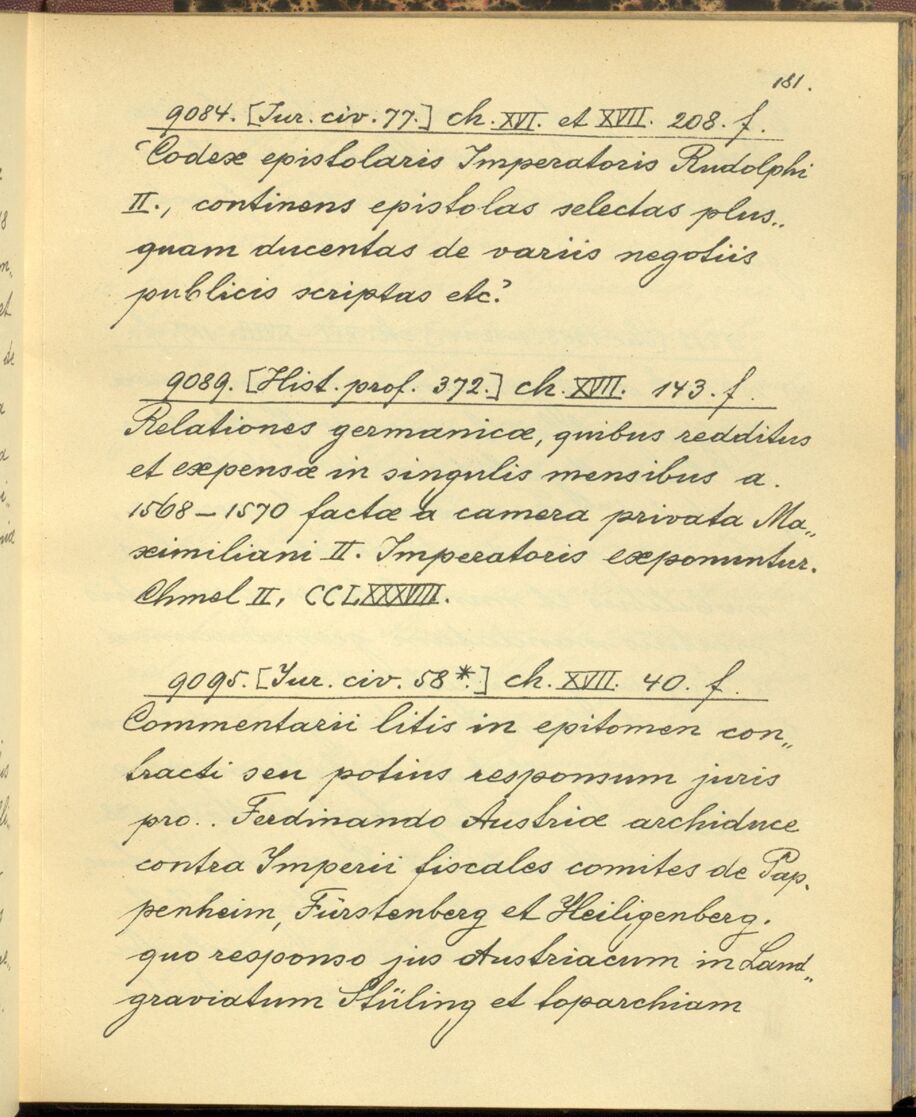 181.
9084. [Jur. civ. 77.] ch. XVI. et XVII. 208. f.
"Codex epistolaris Imperatoris Rudolphi
II., continens epistolas selectas plus„
quam ducentas de variis negotiis
publicis scriptas etc."
9089. [Hist. prof. 372.] ch. XVII. 143. f.
Relationes germanicæ, quibus redditus
et expensæ in singulis mensibus a.
1568–1570 factæ a camera privata Ma„
ximiliani II. Imperatoris exponuntur.
Chmel II, CCLXXXVIII.
9095. [Jur. civ. 58*.] ch. XVII. 40. f.
Commentarii litis in epitomen con„
tracti seu potius responsum juris
pro.. Ferdinando Austriæ archiduce
contra Imperii fiscales comites de Pap„
penheim, Fürstenberg et Heiligenberg.
quo responso jus Austriacum in Land„
graviatum Stüling et toparchiam